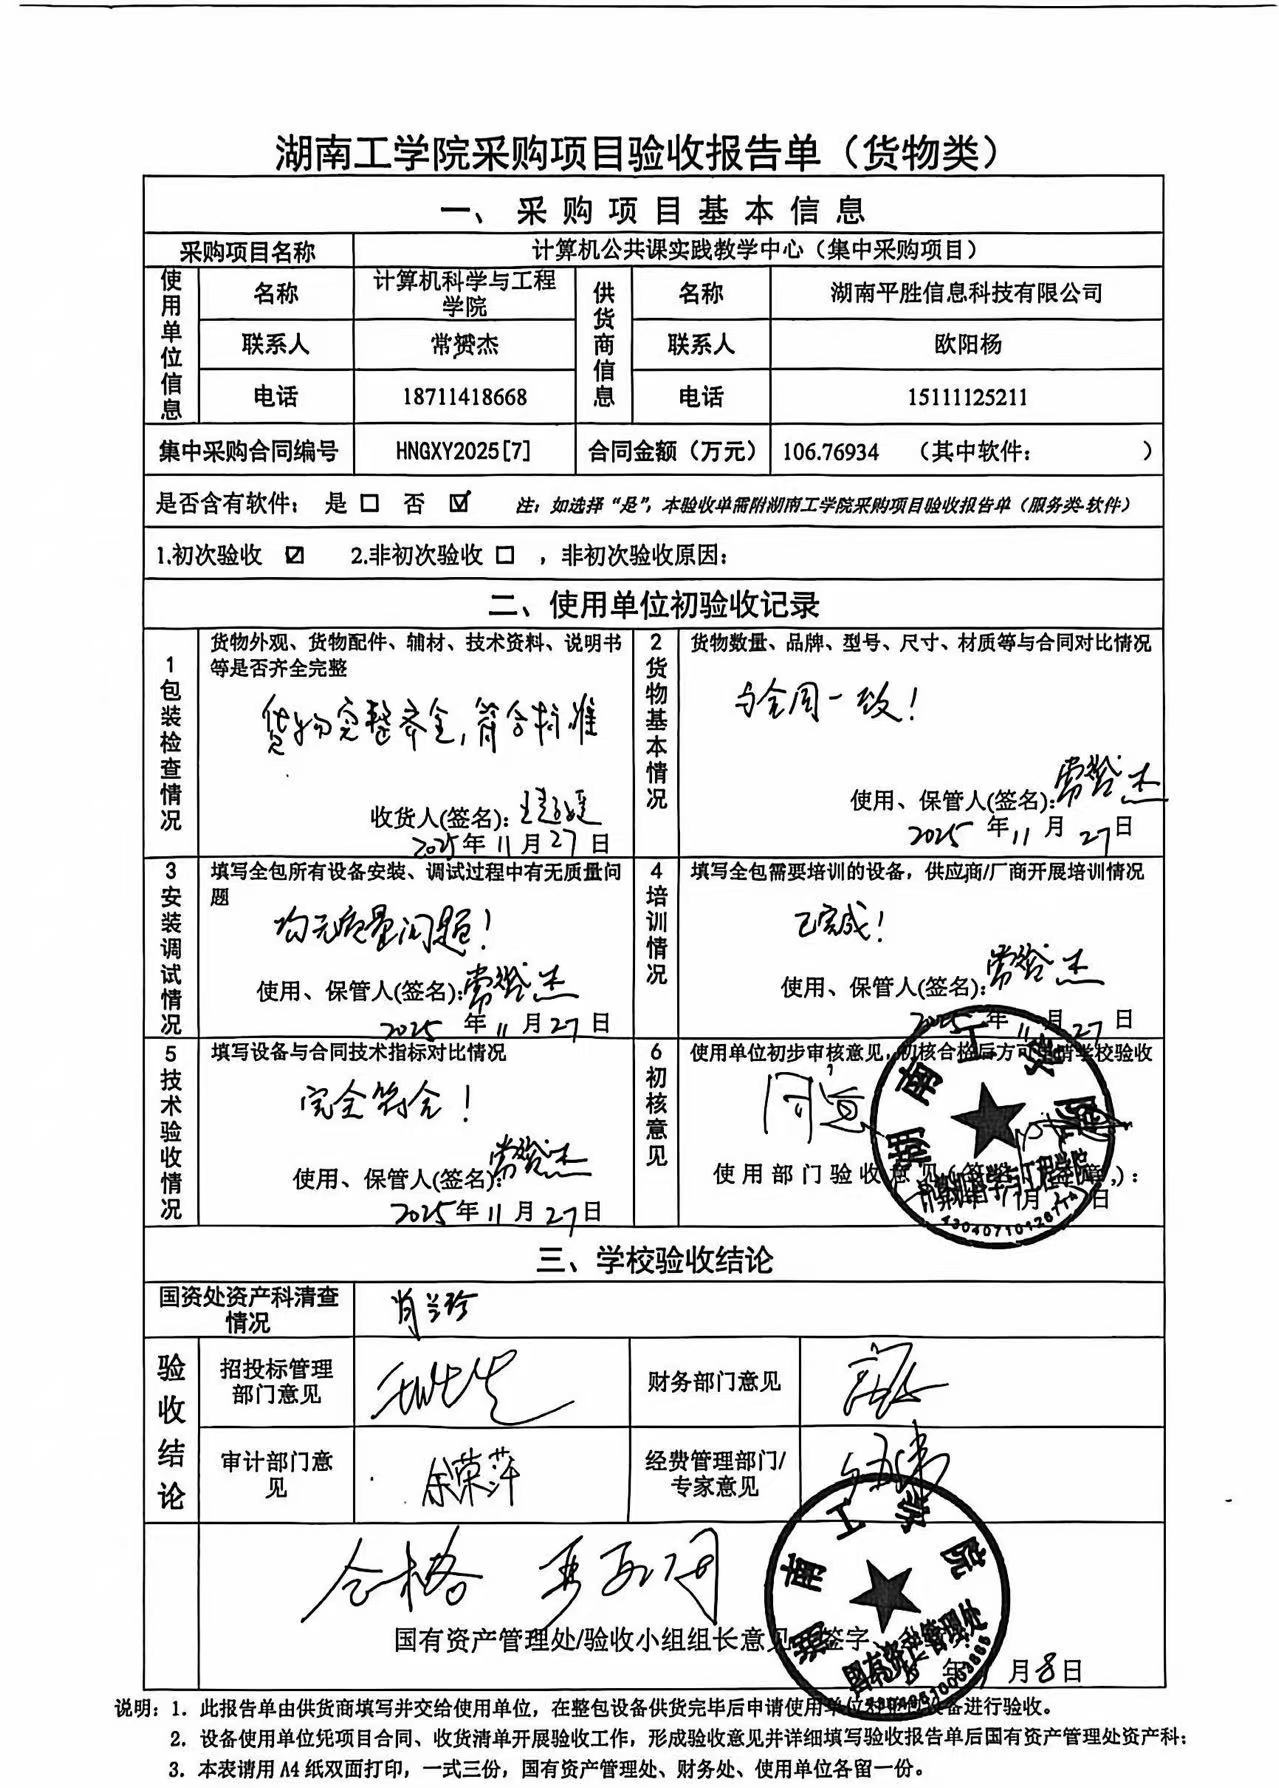 湖南工学院采购项目验收报告单（货物类）
一、采购项目基本信息
采购项目名称 计算机公共课实践教学中心（集中采购项目）
使用单位信息 名称 计算机科学与工程学院 供货商信息 名称 湖南平胜信息科技有限公司
联系人 常赟杰 联系人 欧阳杨
电话 18711418668 电话 15111125211
集中采购合同编号 HNGXY2025[7] 合同金额（万元） 106.76934 （其中软件： ）
是否含有软件： 是 □ 否 ☑ 注：如选择“是”，本验收单需附湖南工学院采购项目验收报告单（服务类-软件）
1.初次验收 ☑ 2.非初次验收 □ ，非初次验收原因：
二、使用单位初验收记录
1 包装检查情况
货物外观、货物配件、辅材、技术资料、说明书等是否齐全完整
货物完整齐全，符合标准
收货人(签名)：
2025年11月27日
2 货物基本情况
货物数量、品牌、型号、尺寸、材质等与合同对比情况
与合同一致！
使用、保管人(签名)：常赟杰
2025年11月27日
3 安装调试情况
填写全包所有设备安装、调试过程中有无质量问题
均无质量问题！
使用、保管人(签名)：常赟杰
2025年11月27日
4 培训情况
填写全包需要培训的设备，供应商/厂商开展培训情况
已完成！
使用、保管人(签名)：常赟杰
2025年11月27日
5 技术验收情况
填写设备与合同技术指标对比情况
完全符合！
使用、保管人(签名)：常赟杰
2025年11月27日
6 初核意见
使用单位初步审核意见，初核合格后方可申请学校验收
同意
使用部门验收意见(签字、盖章)：
湖南工学院
计算机科学与工程学院
三、学校验收结论
国资处资产科清查情况 肖兰珍
验收结论
招投标管理部门意见
财务部门意见
审计部门意见 余荣萍
经费管理部门/专家意见
合格
国有资产管理处/验收小组组长意见 签字
湖南工学院
国有资产管理处
年 月8日
说明：1. 此报告单由供货商填写并交给使用单位，在整包设备供货完毕后申请使用单位对 设备进行验收。
2. 设备使用单位凭项目合同、收货清单开展验收工作，形成验收意见并详细填写验收报告单后国有资产管理处资产科；
3. 本表请用 A4 纸双面打印，一式三份，国有资产管理处、财务处、使用单位各留一份。